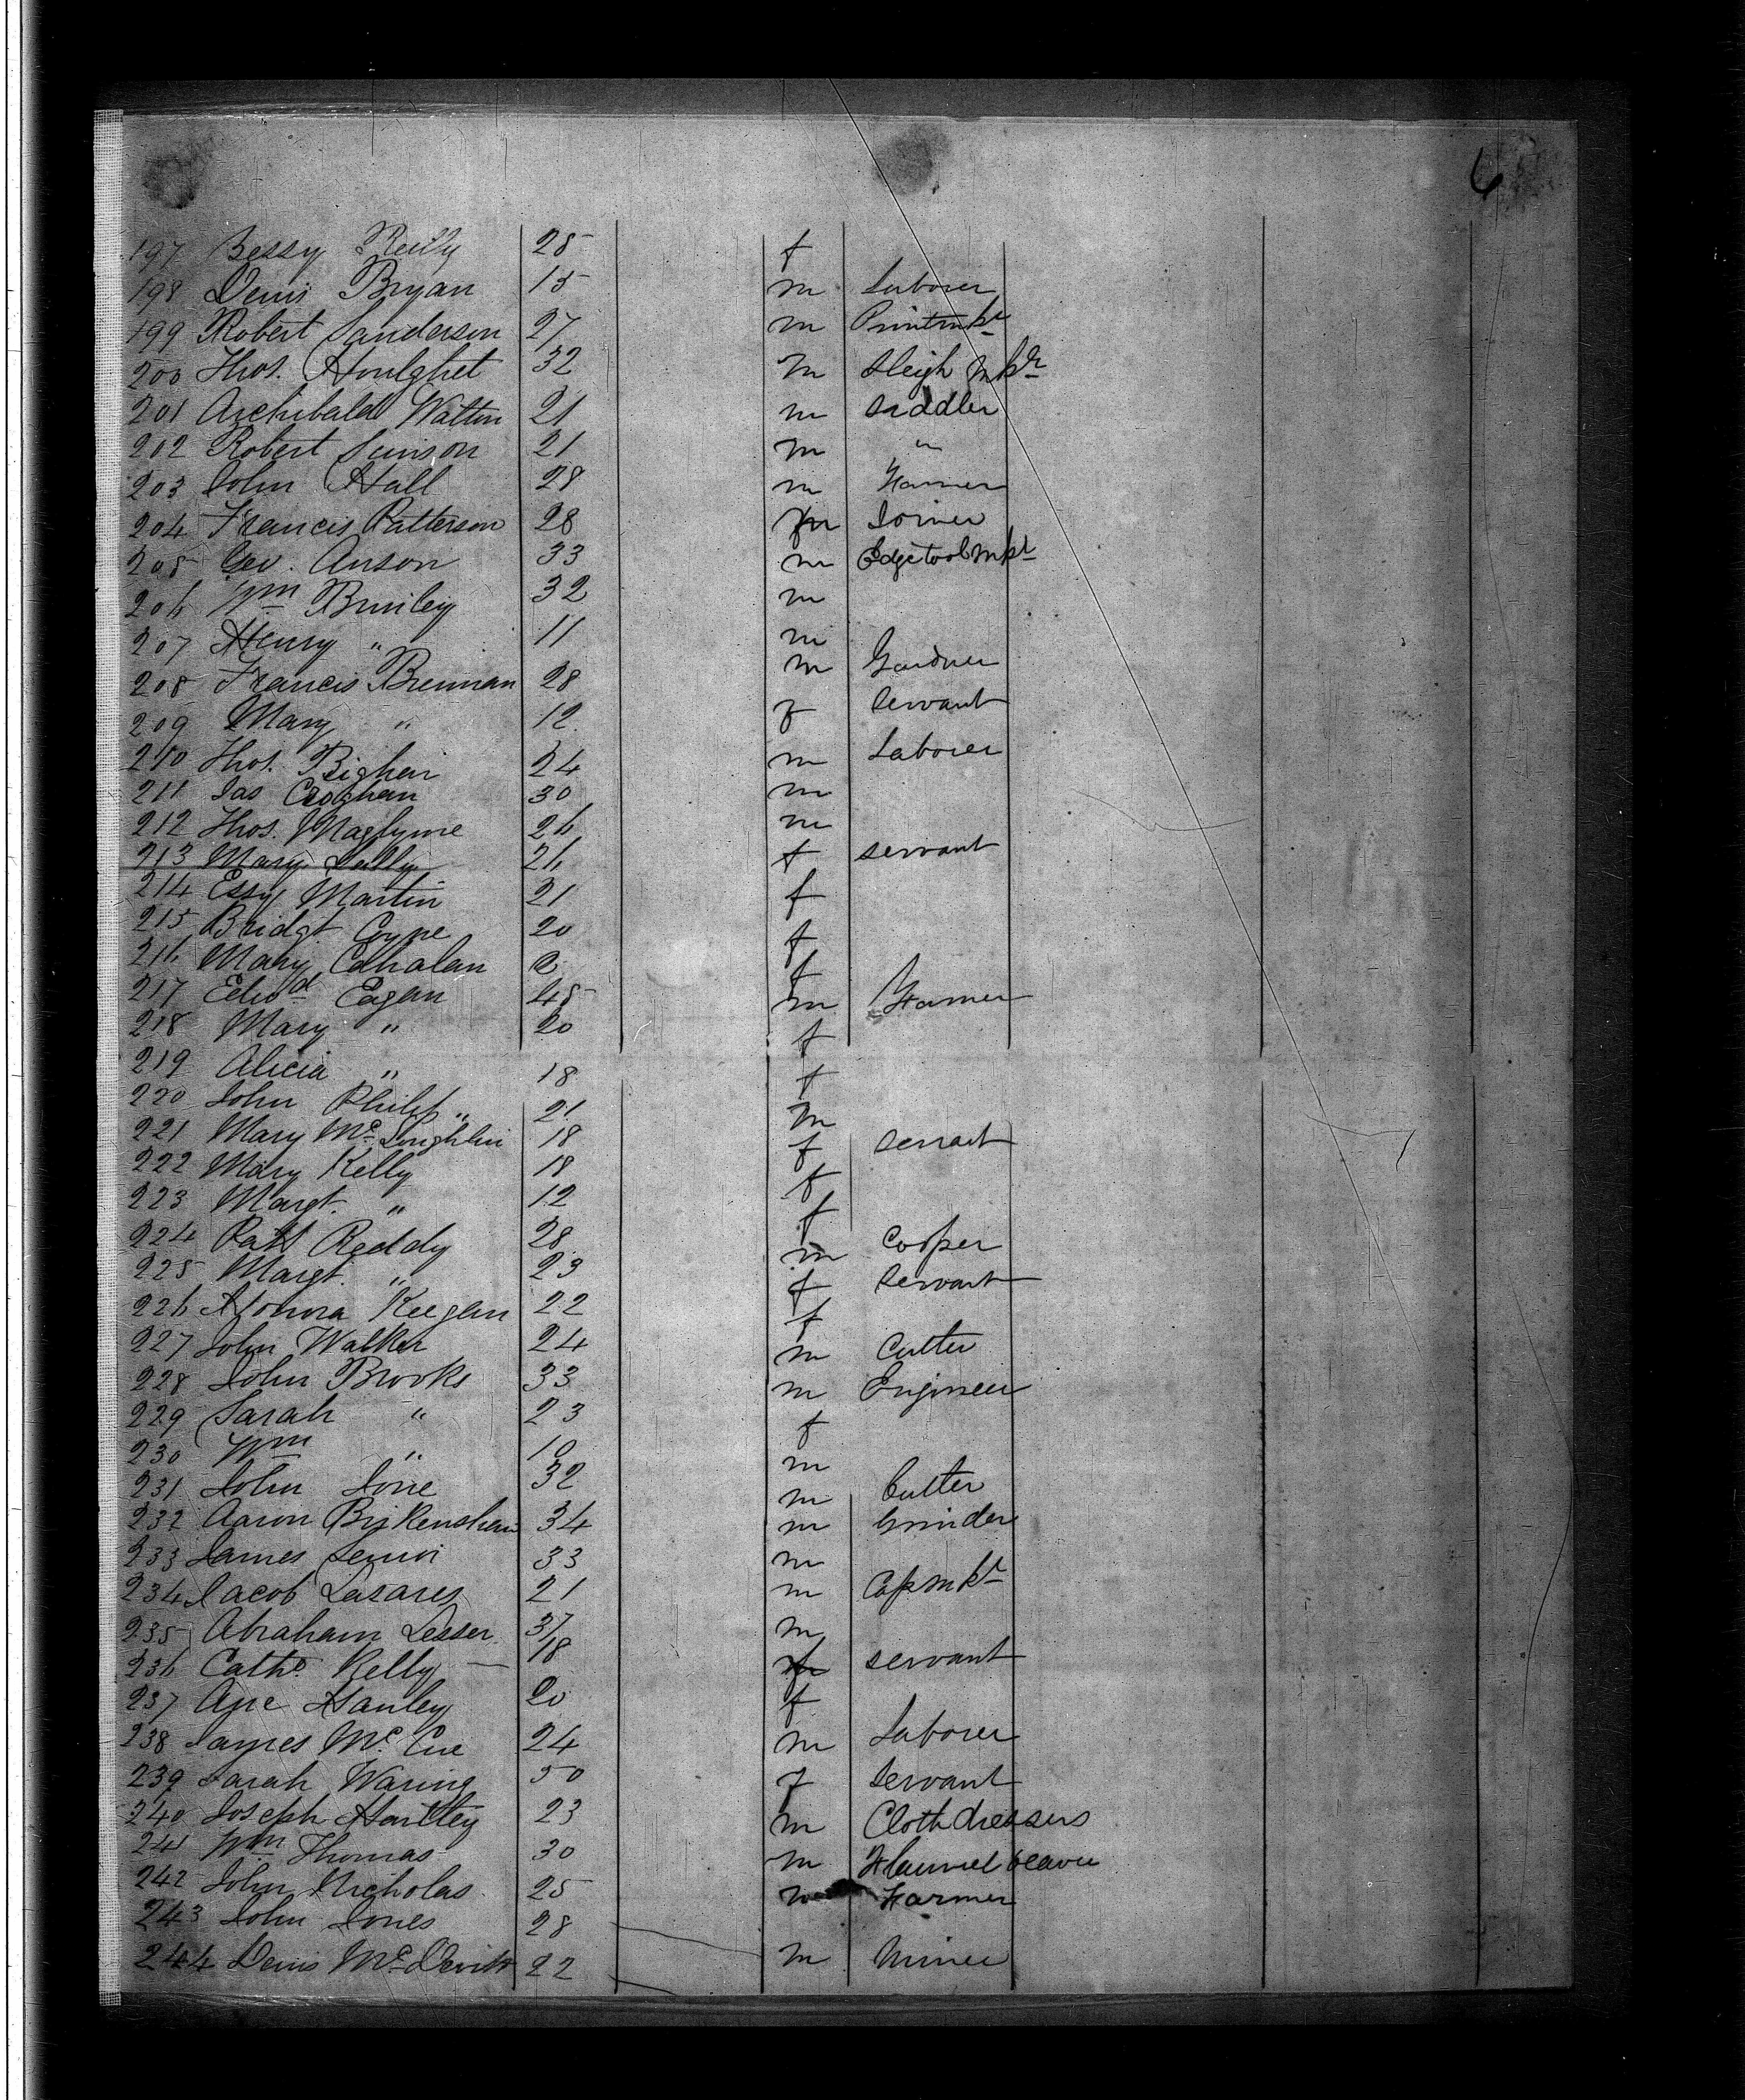 6
197 Bessy Reilly 25 f
198 Denis Bryan 15 m Laborer
199 Robert Sanderson 27 m Printmkr
200 Thos. Houlghet 32 m Sleigh mkr
201 Archibald Watton 21 m Saddler
202 Robert Simson 21 m "
203 John Hall 28 m Farmer
204 Francis Patterson 28 m Joiner
205 Geo. Anson 33 m Edgetoolmkr
206 Wm Brinley 32 m
207 Henry " 11 m
208 Francis Brennan 28 m Gardner
209 Mary " 12 f Servant
210 Thos. Bighen 24 m Laborer
211 Jas Croghan 30 m
212 Thos. Maglyme 26 m
213 Mary Lally 26 f servant
214 Essy Martin 21 f
215 Bridgt Coyne 20 f
216 Mary Cahalan f
217 Edwd Eagan 45 m Farmer
218 Mary " 20 f
219 Alicia " 18 f
220 John Philip " 21 m
221 Mary McLoughlin 18 f servant
222 Mary Kelly 18 f
223 Margt. " 12 f
224 Patt Reddy 28 m Cooper
225 Margt. " 23 f Servant
226 Honora Keegan 22 f
227 John Walker 24 m Cutter
228 John Brooks 33 m Engineer
229 Sarah " 23 f
230 Wm " 10 m
231 John Ione 32 m Cutter
232 Aaron Birkenshaw 34 m Grinder
233 James 33 m
234 Jacob Lasares 21 m Capmkr
235 Abraham Lesser 37 m
236 Cathe Kelly 18 f servant
237 Ane Hanley 20 f
238 James McCue 24 m Laborer
239 Sarah Waring 50 f Servant
240 Joseph Hartley 23 m Clothdressers
241 Wm Thomas 30 m Flannel weaver
242 John Nicholas 25 m Farmer
243 John Jones 28
244 Denis McDevitt 22 m Miner